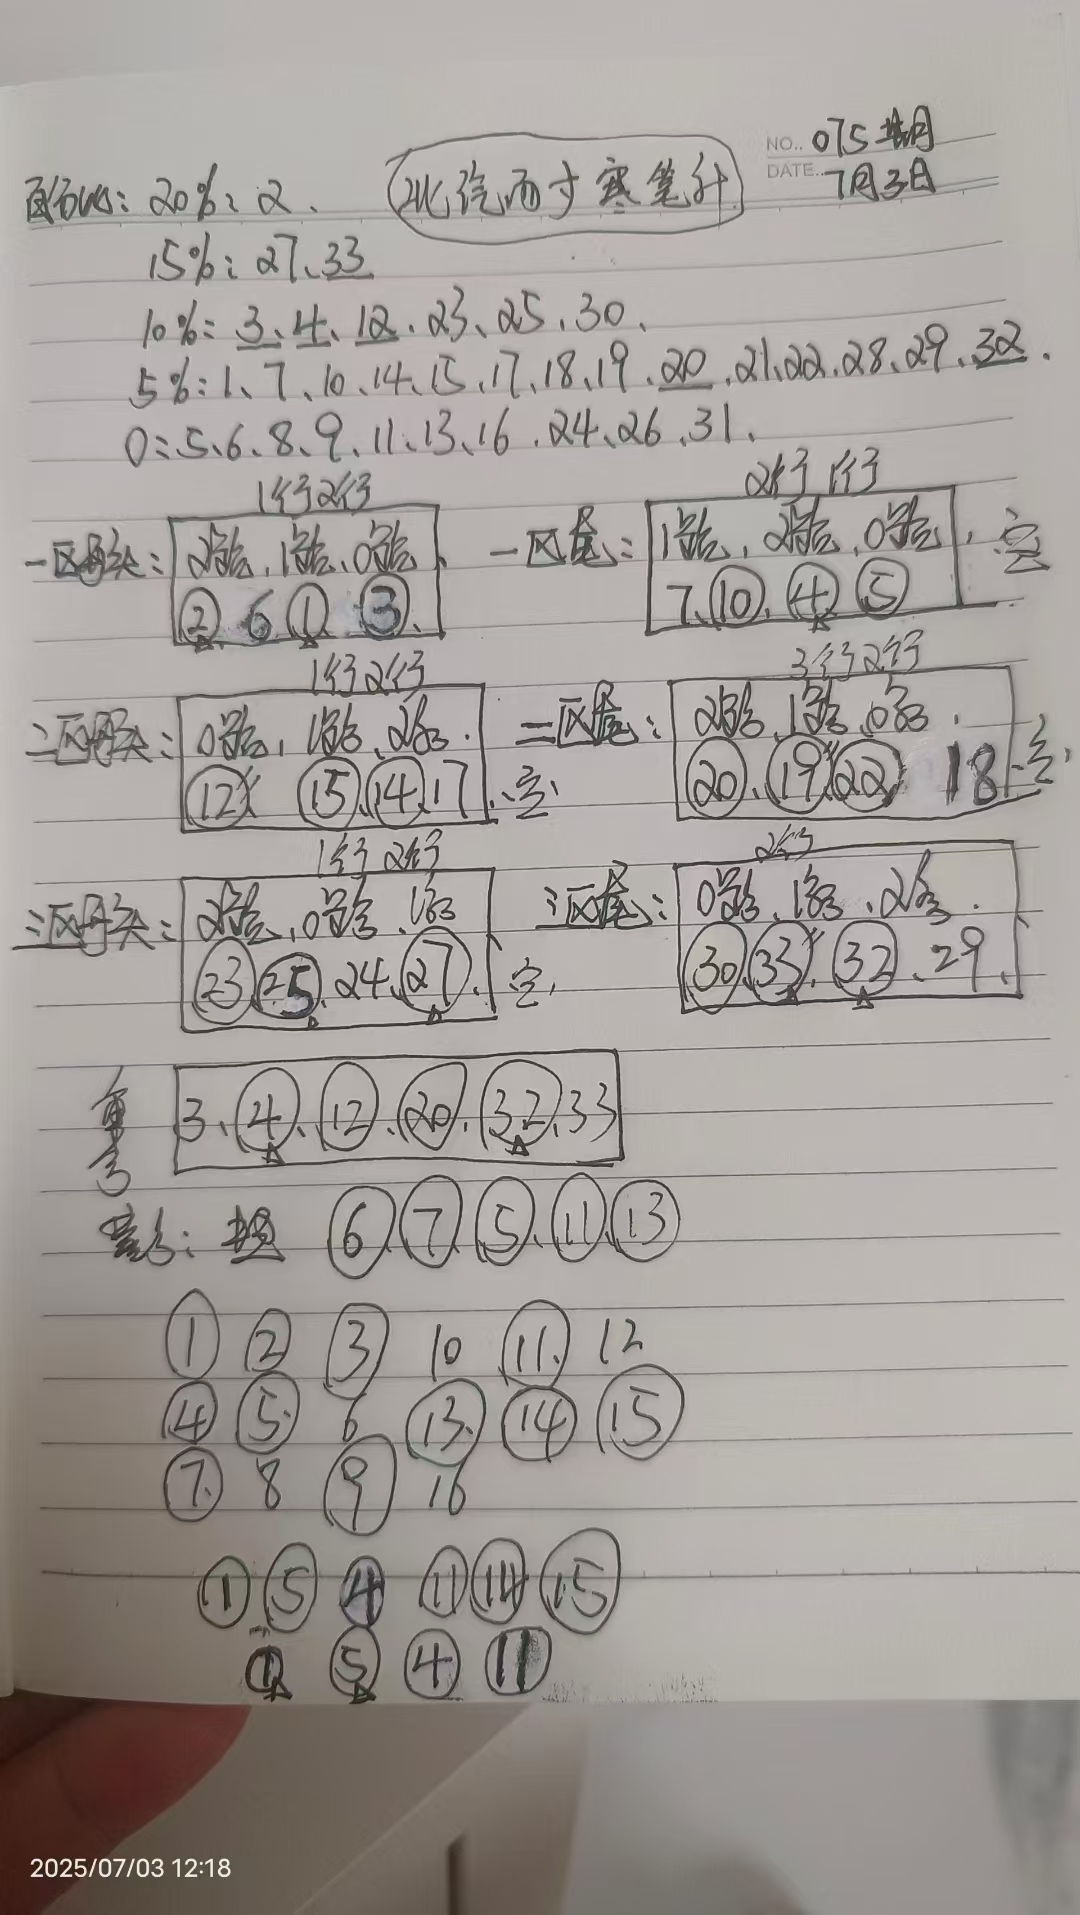 NO.. 075期
DATE.. 7月3日
百分比: 20%: 2、
15%: 27、33
10%: 3、4、12、23、25、30、
5%: 1、7、10、14、15、17、18、19、20、21、22、28、29、32.
0:5、6、8、9、11、13、16、24、26、31、
1行2行
2行1行
一区丹头: 2路、1路、0路
② 6 ① ③、
一区尾: 1路、2路、0路、空
7、⑩、④ ⑤
1行2行
3行2行
二区丹头: 0路、1路、2路.
⑫ ⑮ ⑭ 17、空
二区尾: 2路、1路、0路.
⑳、⑲ ㉒ 18、空
1行2行
2行
三区丹头: 2路、0路、1路
㉓ ㉕、24、㉗、空.
三区尾: 0路、1路、2路.
㉚ ㉝、㉜、29.
重号
3、④、⑫、⑳、㉜、33
⑥、⑦、⑤、⑪、⑬
① ② ③ 10 ⑪ 12
④ ⑤ 6 ⑬ ⑭ ⑮
⑦ 8 ⑨ 16
① ⑤ ④ ⑪ ⑭ ⑮
① ⑤ ④ ⑪
2025/07/03 12:18